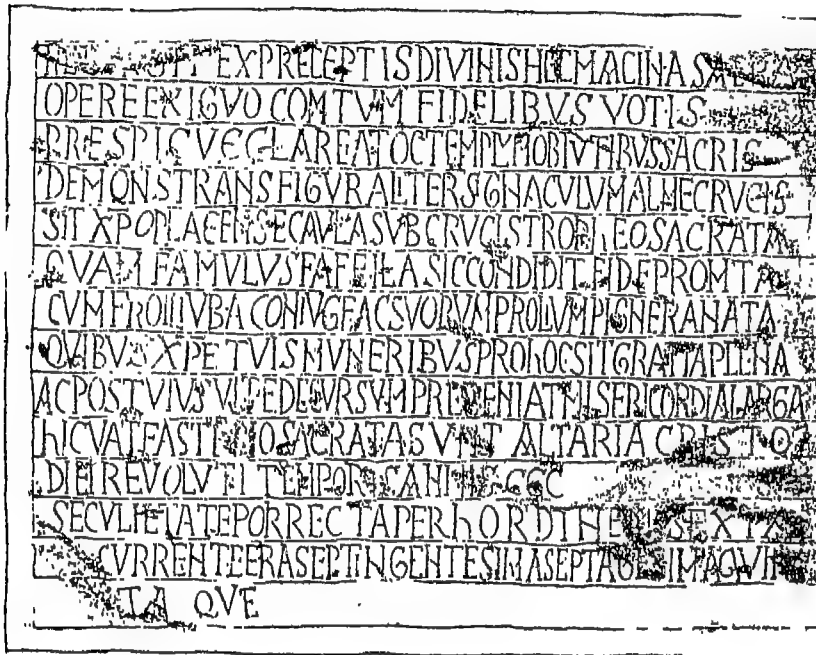 EXPRECEPTISDIVINISHECMACINASACRA
OPEREEXIGVOCOMTVMFIDELIBVSVOTIS
PRESPICVECLAREATOCTEMPLVMOBTVTIBVSSACRIS
DEMONSTRANSFIGVRALITERSIGNACVLVMALMECRVCIS
SITXPOPLACENSECAVLASVBCRVCISTROPhEOSACRATA
QVAMFAMVLVSFAFFILASICCONDIDITFIDEPROMTA
CVMFROILIVBACONIVGEACSVORVMPROLIVMPIGNERANATA
QVIBVSXPETVISMVNERIBVSPROhOCSITGRATIAPLENA
ACPOSTVIVSVITEDECVRSVMPREVENIATMISERICORDIALARGA
hICVATEASTERIOSACRATASVNTALTARIACRISTO
DIEIREVOLVTITEMPORISANNISCCC
SECVLIETATEPORRECTAPERhORDINEMSEXTA
CVRRENTEERASEPTINGENTESIMASEPTAGESIMAQVIN
TA QVE